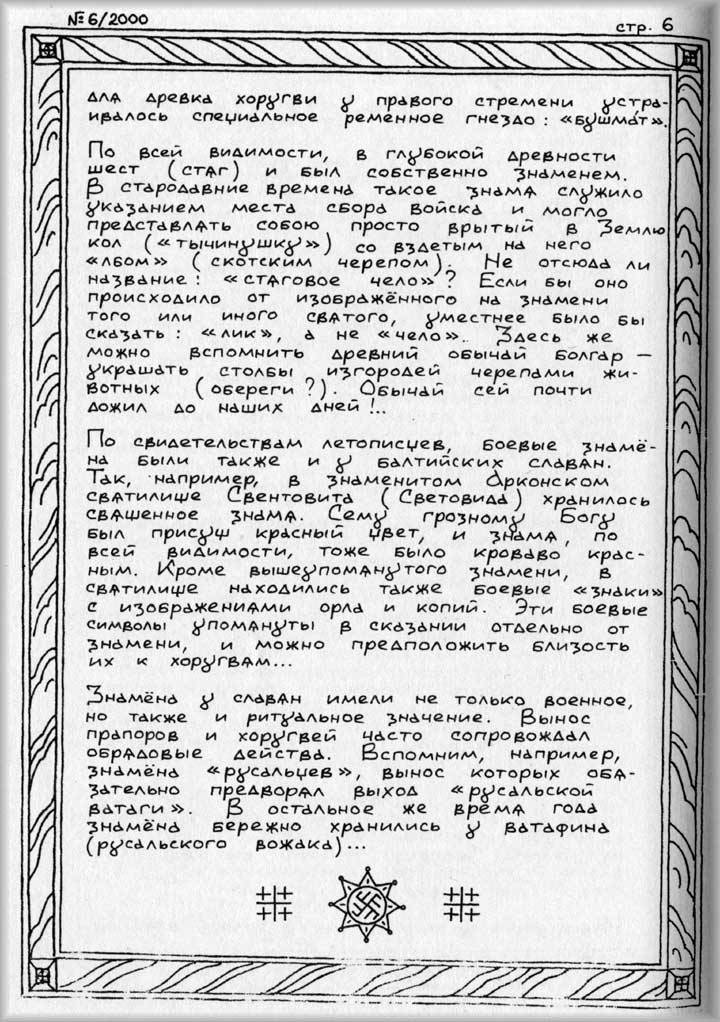 № 6/2000
стр. 6
для древка хоругви у правого стремени устра-
ивалось специальное ременное гнездо: «бушмат».
По всей видимости, в глубокой древности
шест (стяг) и был собственно знаменем.
В стародавние времена такое знамя служило
указанием места сбора войска и могло
представлять собою просто врытый в Землю
кол («тычинушку») со вздетым на него
«лбом» (скотским черепом). Не отсюда ли
название: «стяговое чело»? Если бы оно
происходило от изображённого на знамени
того или иного святого, уместнее было бы
сказать: «лик», а не «чело». Здесь же
можно вспомнить древний обычай болгар —
украшать столбы изгородей черепами жи-
вотных (обереги?). Обычай сей почти
дожил до наших дней!..
По свидетельствам летописцев, боевые знамё-
на были также и у балтийских славян.
Так, например, в знаменитом Арконском
святилище Свентовита (Световида) хранилось
священное знамя. Сему грозному Богу
был присущ красный цвет, и знамя, по
всей видимости, тоже было кроваво крас-
ным. Кроме вышеупомянутого знамени, в
святилище находились также боевые «знаки»
с изображениями орла и копий. Эти боевые
символы упомянуты в сказании отдельно от
знамени, и можно предположить близость
их к хоругвям...
Знамёна у славян имели не только военное,
но также и ритуальное значение. Вынос
прапоров и хоругвей часто сопровождал
обрядовые действа. Вспомним, например,
знамёна «русальцев», вынос которых обя-
зательно предворял выход «русальской
ватаги». В остальное же время года
знамёна бережно хранились у ватафина
(русальского вожака)...